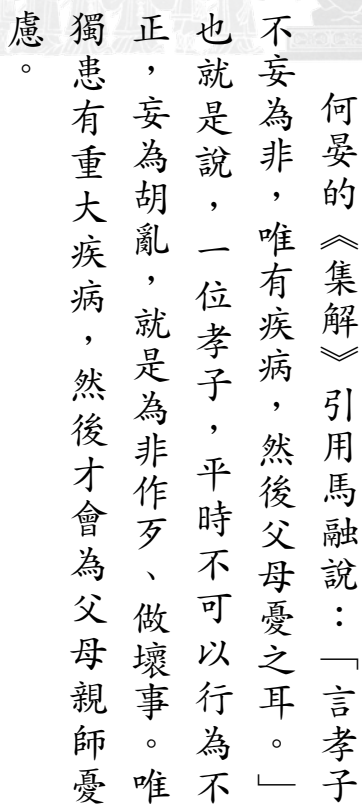 何晏的《集解》引用馬融說：「言孝子
不妄為非，唯有疾病，然後父母憂之耳。」
也就是說，一位孝子，平時不可以行為不
正，妄為胡亂，就是為非作歹、做壞事。唯
獨患有重大疾病，然後才會為父母親師憂
慮。